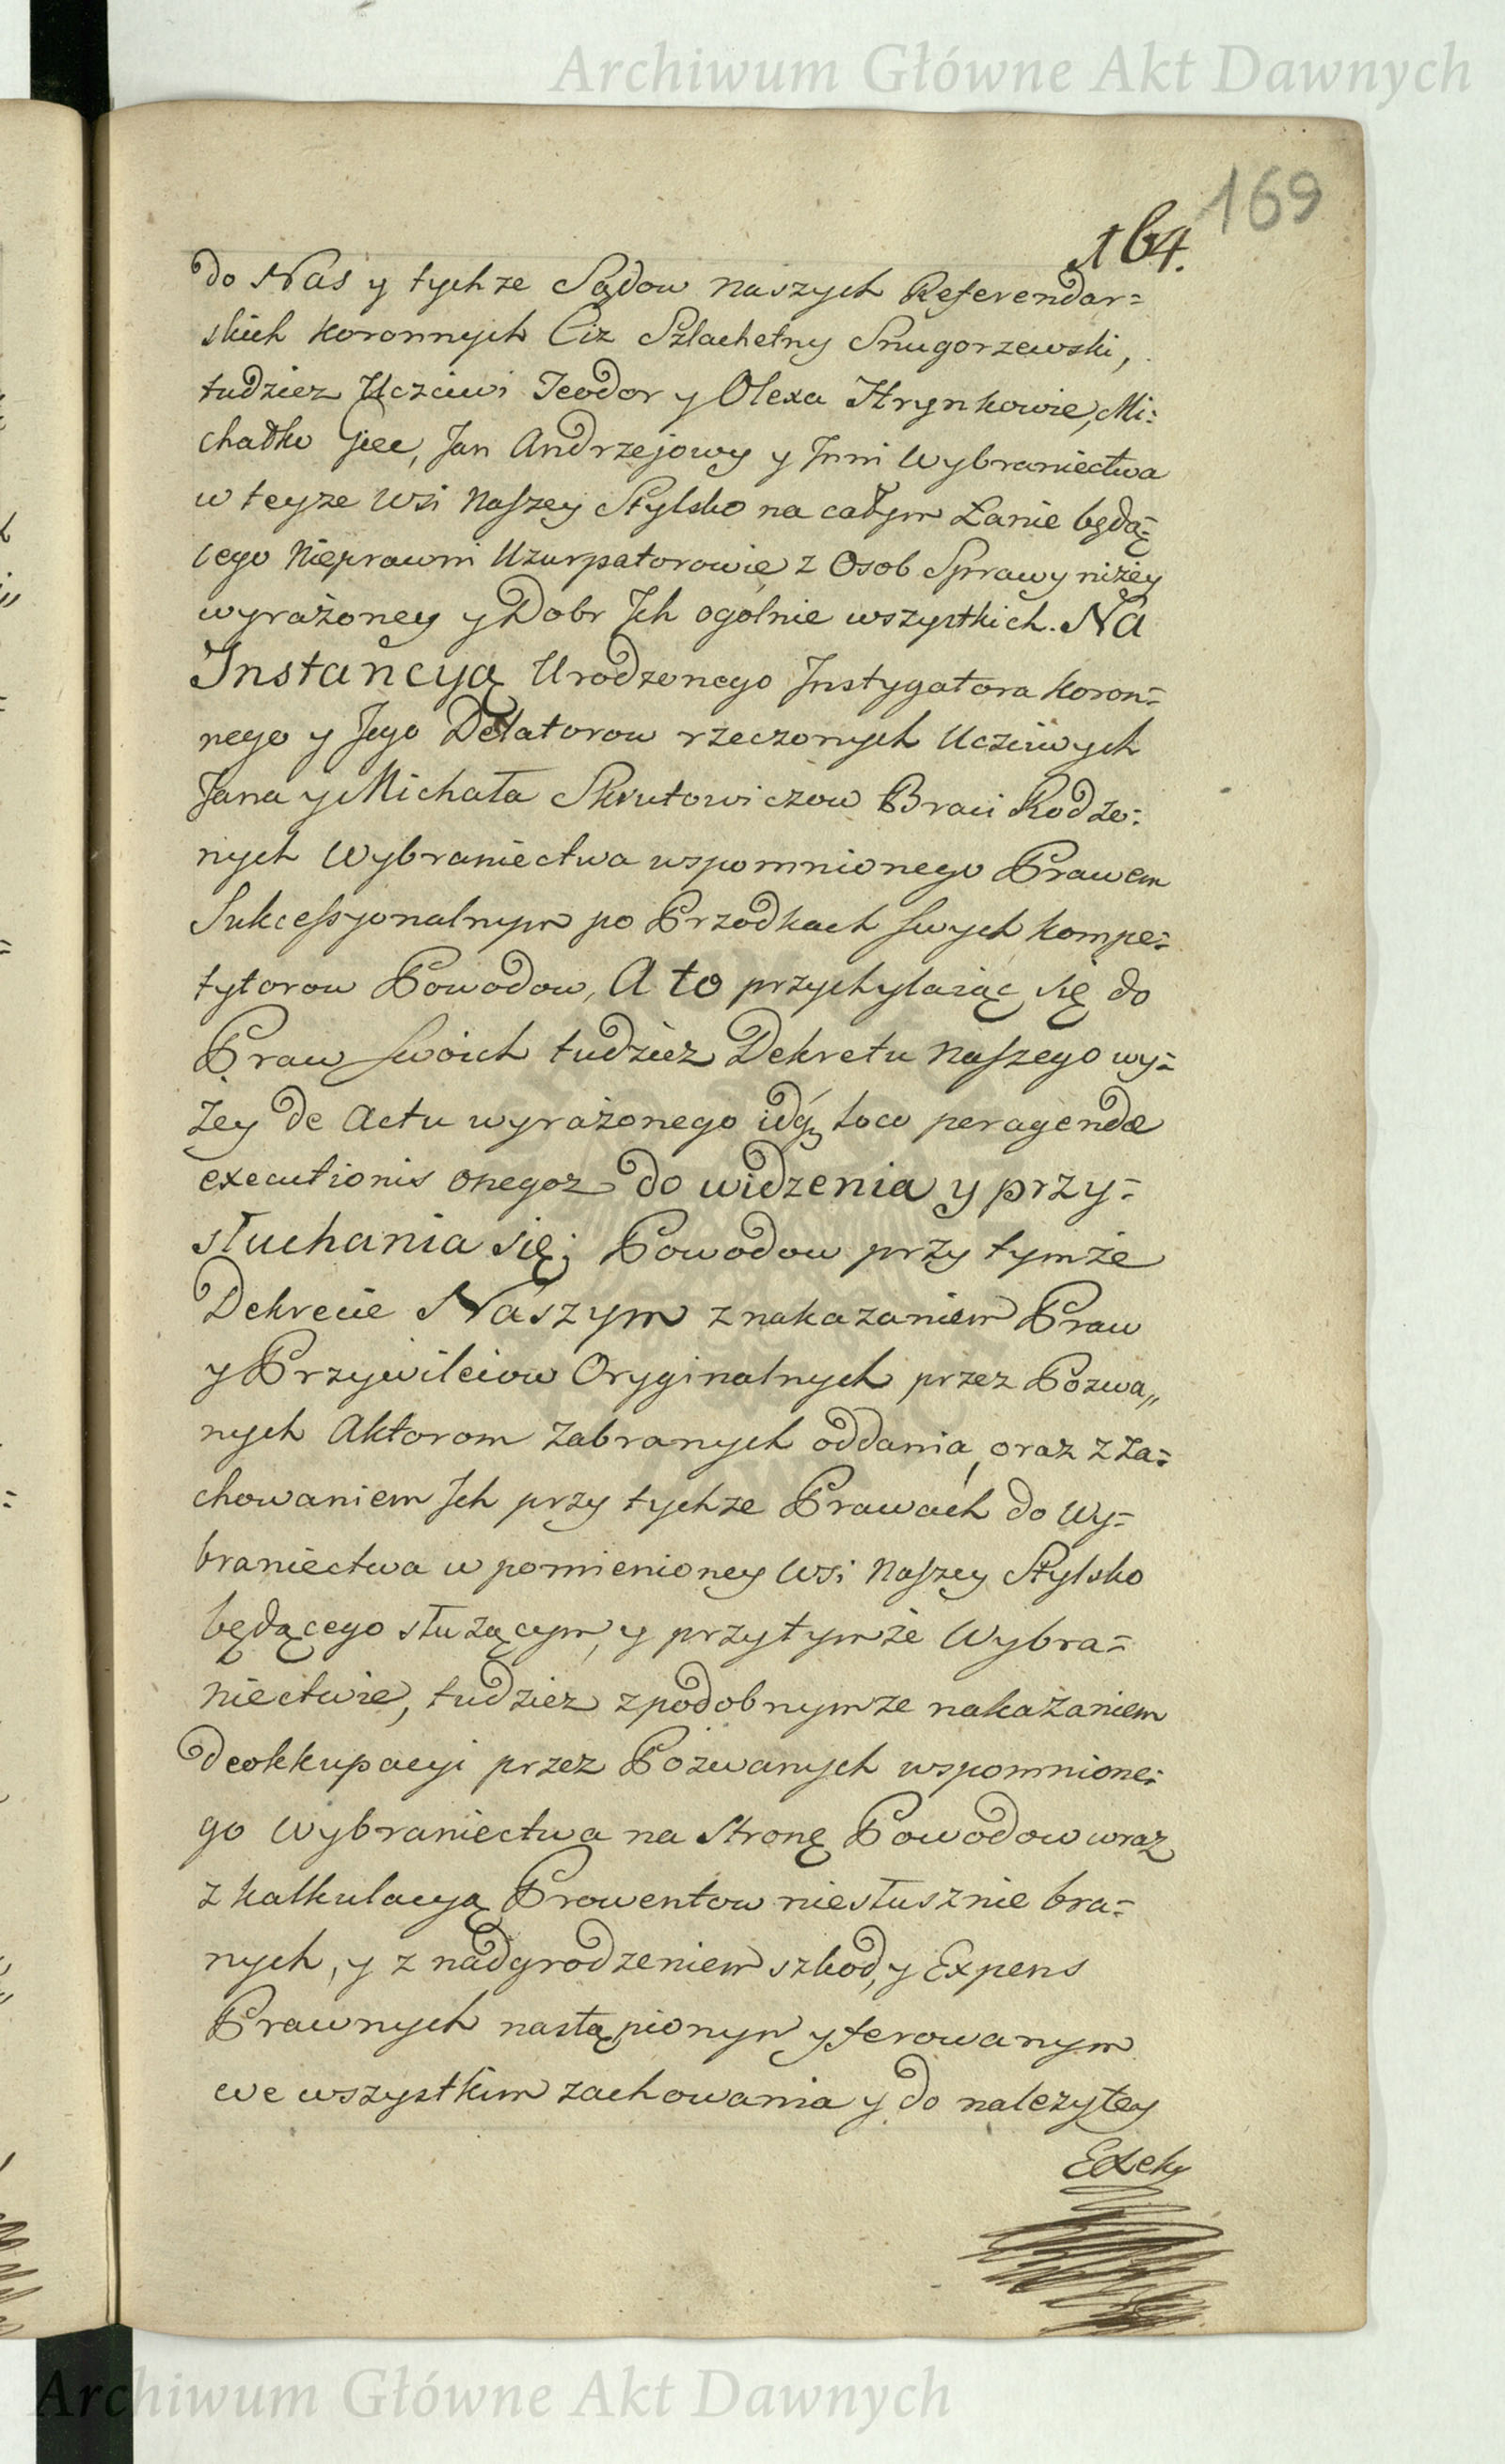 Archiwum Główne Akt Dawnych
169
164.
do Nas y tychze Sądow naszych Referendar=
skich Koronnych Ciz Szlachetny Snugorzewski,
tudziez Uczciwi Teodor y Olexa Hrynkowie, Mi=
chałko Giec, Jan Andrzejowy y Inni Wybraniectwa
w teyze Wsi Naszey Stylsko na całym Łanie będą=
cego Nieprawni Uzurpatorowie z Osob Sprawy niżey
wyrażoney y Dobr Ich ogólnie wszystkich. Na
Instancyą Urodzonego Instygatora Koron=
nego y Jego Delatorow rzeczonych Uczciwych
Jana y Michała Skrutowiczow Braci Rodzo=
nych Wybraniectwa wspomnionego Prawem
Sukcessyonalnym po Przodkach swych kompe=
tytorow Powodow, A to przychylaiąc się do
Praw swoich tudziez Dekretu Naszego wy=
zey de Actu wyrażonego idq; loco peragendæ
executionis onegoz do widzenia y przy=
słuchania się; Powodow przy tymże
Dekrecie Naszym z nakazaniem Praw
y Przywileiow Oryginalnych przez Pozwa„
nych Aktorom zabranych oddania, oraz z za=
chowaniem Ich przy tychze Prawach do Wy=
braniectwa w pomienioney Wsi Naszey Stylsko
będącego słuzącym, y przy tymże Wybra=
niectwie, tudziez z podobnymze nakazaniem
deokkupacyi przez Pozwanych wspomnione=
go Wybraniectwa na Stronę Powodow wraz
z kalkulacyą Prowentow niesłusznie bra=
nych, y z nadgrodzeniem szkod, y Expens
Prawnych nastąpionym y ferowanym
we wszystkim zachowania y do nalezytey
Exeky
Archiwum Główne Akt Dawnych